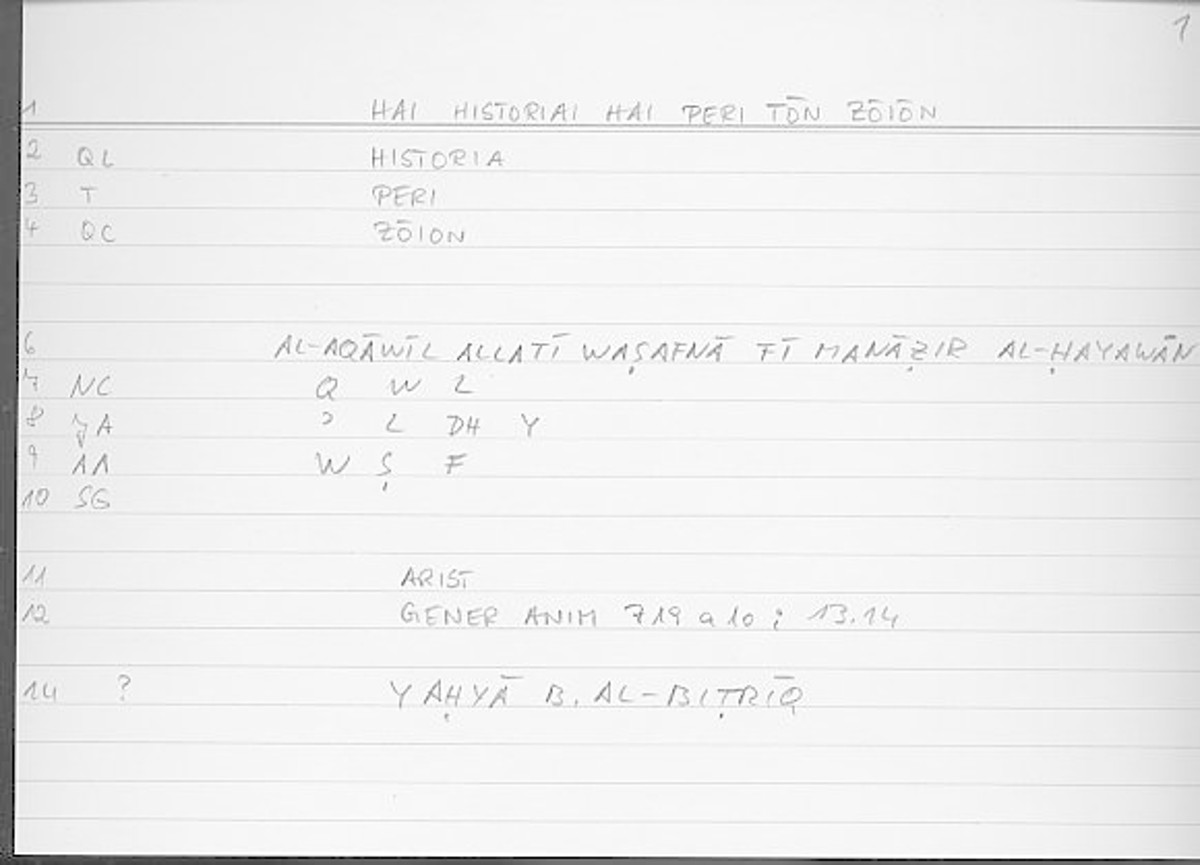 1
1 HAI HISTORIAI HAI PERI TŌN ZŌIŌN
2 QL HISTORIA
3 T PERI
4 QC ZŌION
6 AL-AQĀWĪL ALLATĪ WAṢAFNĀ FĪ MANĀẒIR AL-ḤAYAWĀN
7 NC Q W L
8 JA ʾ L DH Y
9 AA W Ṣ F
10 SG
11 ARIST
12 GENER ANIM 719 a 10 ; 13.14
14 ? YAḤYĀ B. AL-BIṬRĪQ